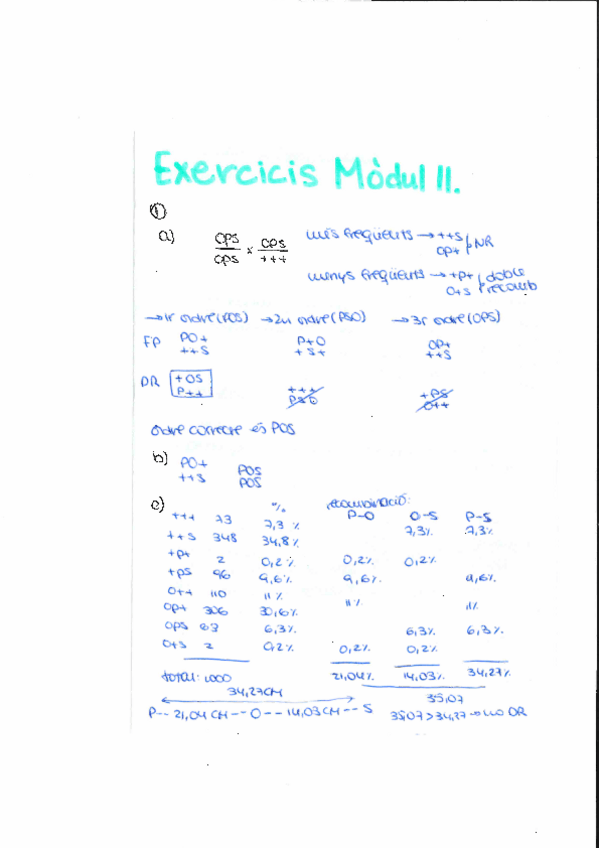 Exercicis Mòdul II.
①
a) OPS/OPS x OPS/+++ més freqüents → ++S OP+ NR
menys freqüents → +P+ O+S doble recomb
→ 1r ordre (POS) → 2n ordre (PSO) → 3r ordre (OPS)
FP PO+ P+O OP+
++S +S+ ++S
DR +OS +++ +PS
P++ PSO O++
Ordre correcte és POS
b) PO+ POS
++S POS
c) % recombinació:
P-O O-S P-S
+++ 73 7,3% 7,3% 7,3%
++S 348 34,8%
+P+ 2 0,2% 0,2% 0,2%
+PS 96 9,6% 9,6% 9,6%
O++ 110 11% 11% 11%
OP+ 306 30,6%
OPS 63 6,3% 6,3% 6,3%
O+S 2 0,2% 0,2% 0,2%
total: 1000 21,04% 14,03% 34,27%
34,27CM 35,07
P-- 21,04 CM -- O -- 14,03 CM -- S 35,07 > 34,27 → no DR